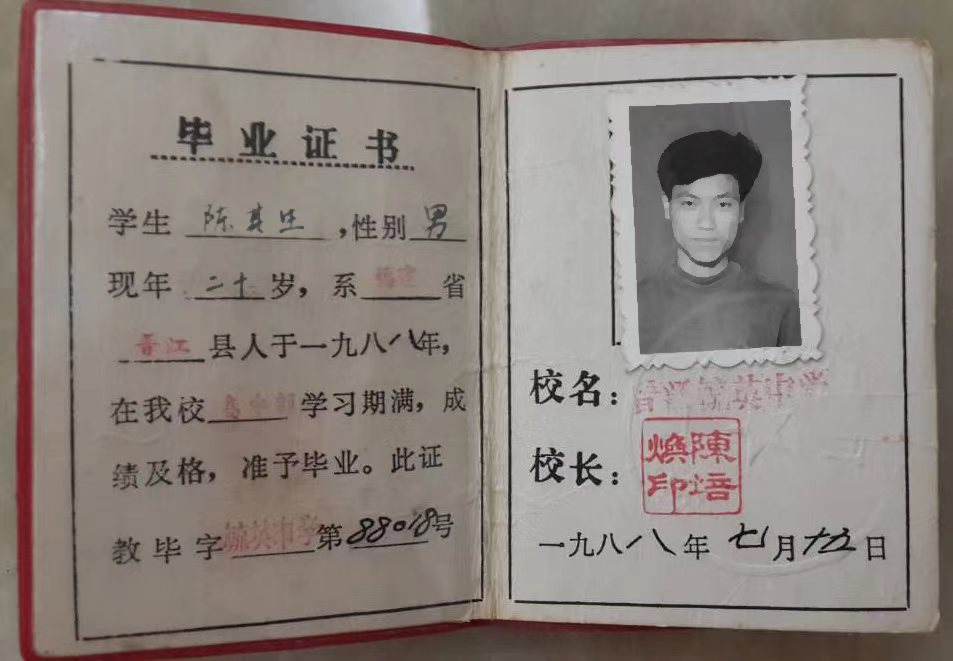 毕业证书
学生 陈其生 ,性别 男
现年 二十 岁，系 福建 省
晋江 县人于一九八八年，
在我校 学习期满，成
绩及格，准予毕业。此证
教毕字 毓英中学 第 88018 号
校名：晋江毓英中学
校长：陳培煥印
一九八八年七月十五日